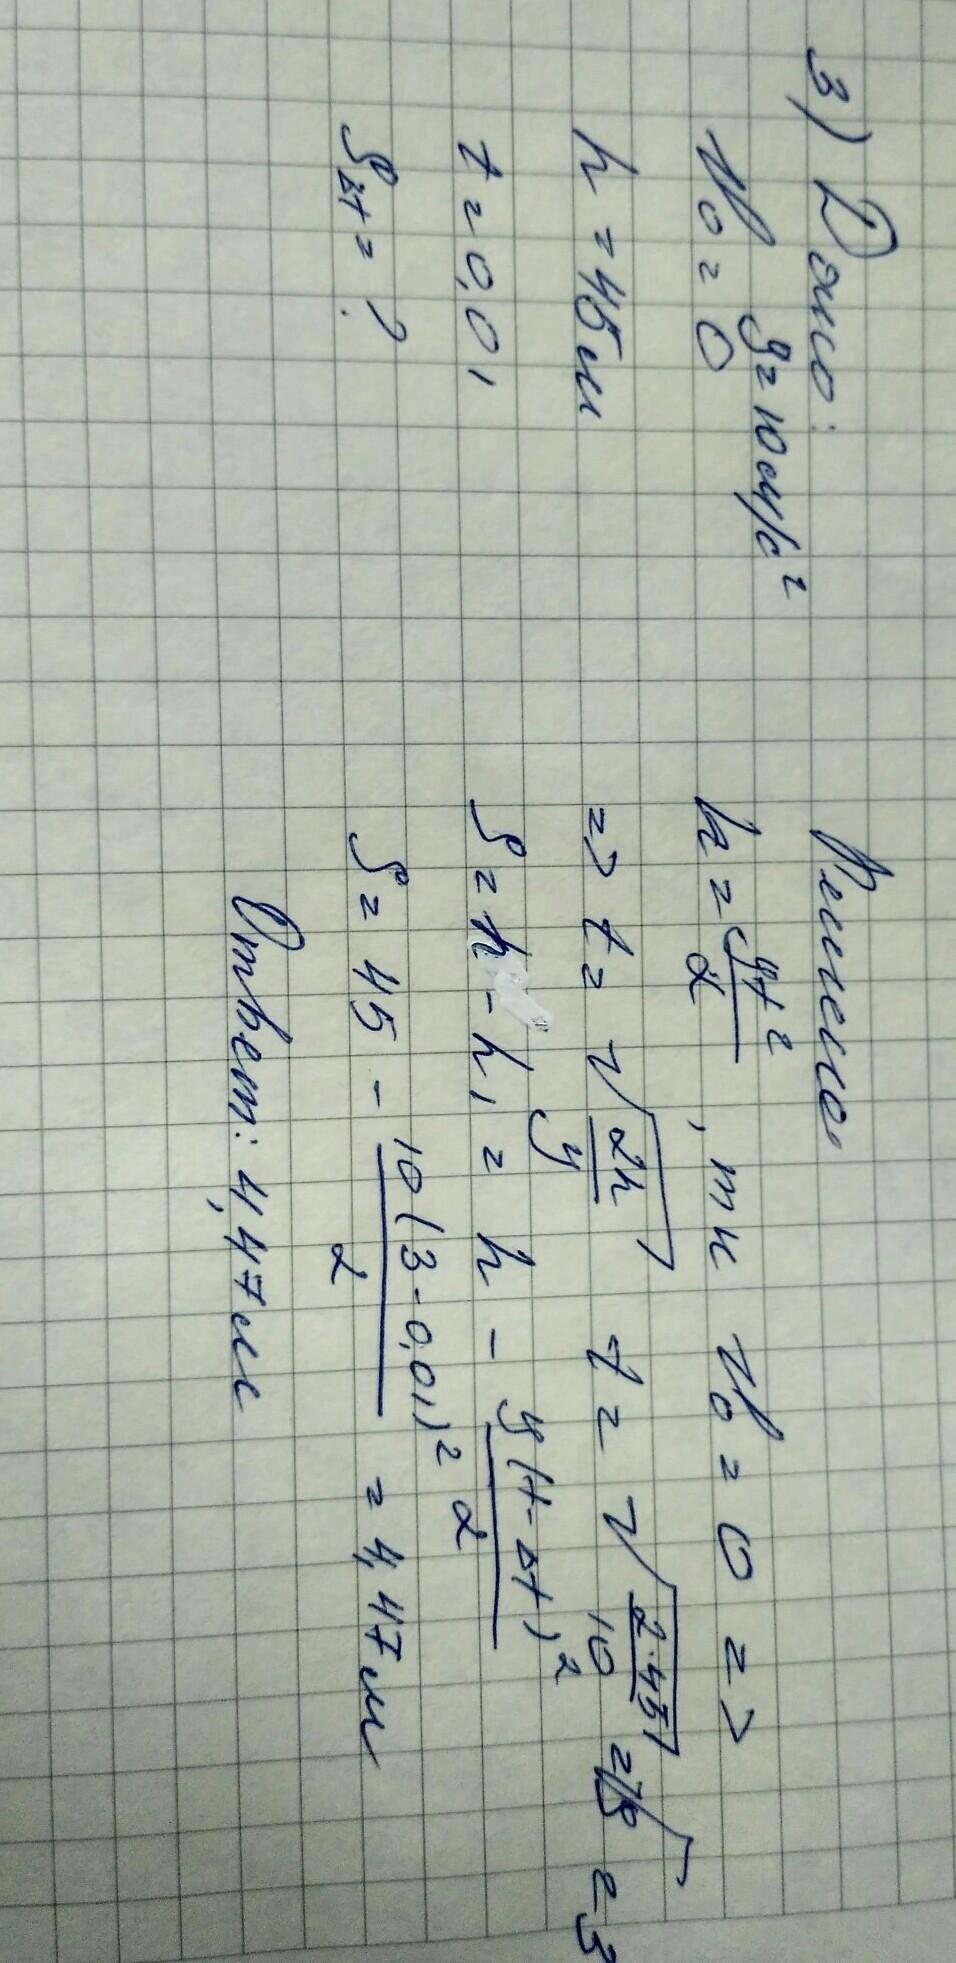 3) Дано:
g = 10 м/с²
v₀ = 0
h = 45 м
t = 0,01
S Δt = ?
Решение
h = gt²/2, тк v₀ = 0 =>
=> t = √(2h/g) t = √(2·45/10) = √9 = 3
S = h - h₁ = h - g(t-Δt)²/2
S = 45 - 10(3-0,01)²/2 = 4,47 м
Ответ: 4,47 м